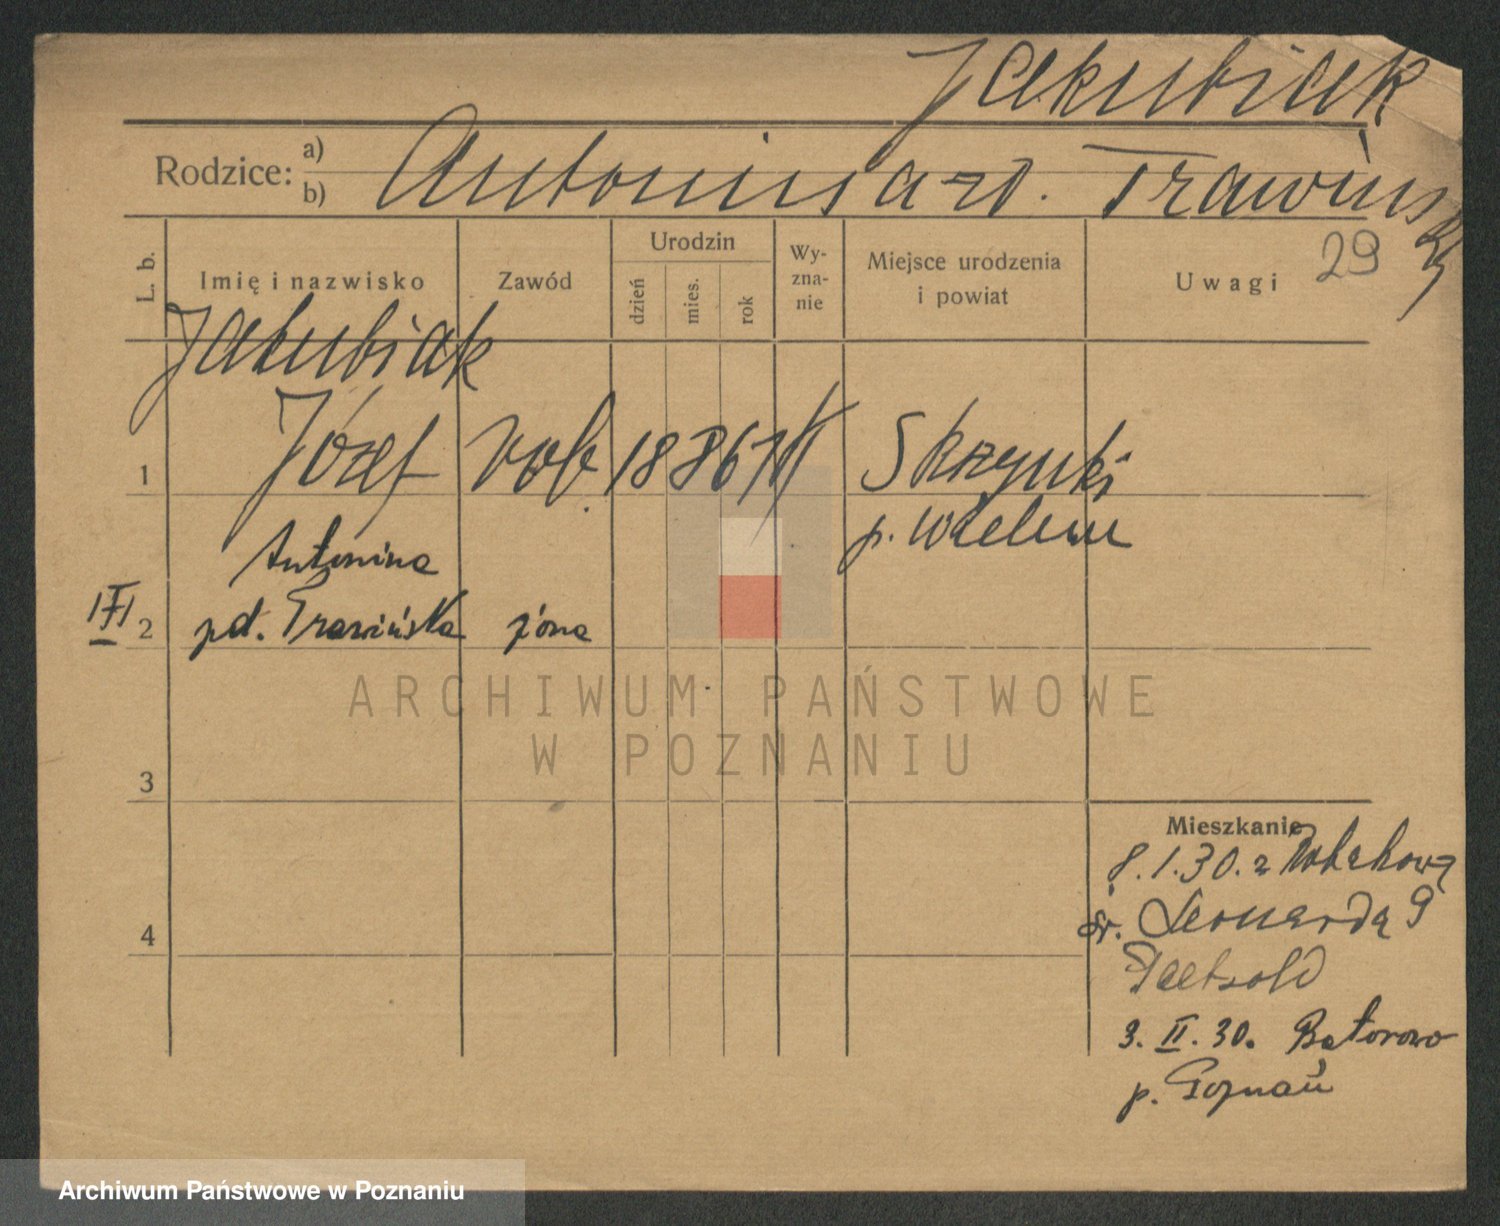 Jakubiak
Rodzice: a)
b) Antonina zd. Trawińska
29
L. b.
Imię i nazwisko
Zawód
Urodzin
dzień
mies.
rok
Wy-
zna-
nie
Miejsce urodzenia
i powiat
Uwagi
Jakubiak
1 Józef rob. 1886 Skrzynki
p. Wieluń
Antonina
2 pd. Trawińska żona
ARCHIWUM PAŃSTWOWE
W POZNANIU
3
Mieszkanie
8.1.30. z
4
św. Leonarda 9
Paetzold
3. II. 30. Batorowo
p. Poznań
Archiwum Państwowe w Poznaniu